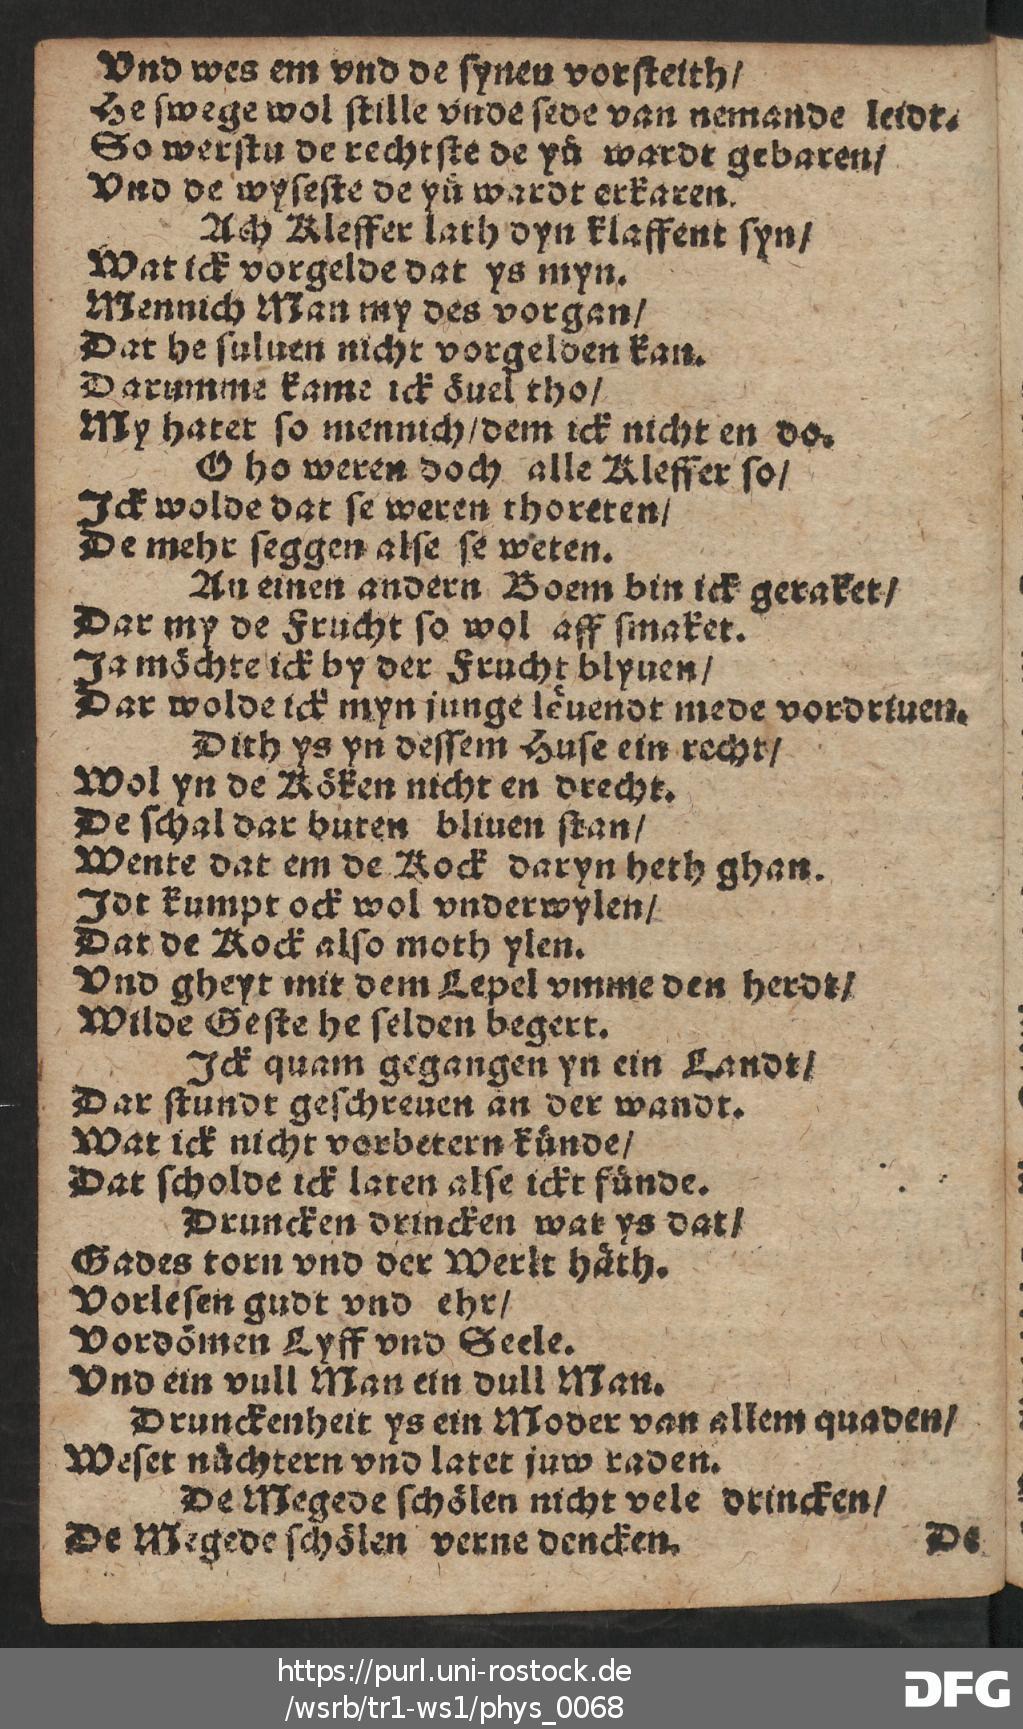 Vnd wes em vnd de ſynen vorſteith/
He ſwege wol ſtille vnde ſede van nemande leidt.
So werſtu de rechtſte de yuͤ wardt gebaren/
Vnd de wyſeſte de yuͤ wardt erkaren.
Ach Kleffer lath dyn klaffent ſyn/
Wat ick vorgelde dat ys myn.
Mennich Man my des vorgan/
Dat he ſuluen nicht vorgelden kan.
Darumme kame ick oͤuel tho/
My hatet ſo mennich/dem ick nicht en do.
O ho weren doch alle Kleffer ſo/
Ick wolde dat ſe weren thoreten/
De mehr ſeggen alſe ſe weten.
An einen andern Boem bin ick geraket/
Dar my de Frucht ſo wol aff ſmaket.
Ja moͤchte ick by der Frucht blyuen/
Dar wolde ick myn junge leͤuendt mede vordriuen.
Dith ys yn deſſem Huſe ein recht/
Wol yn de Koͤken nicht en drecht.
De ſchal dar buten bliuen ſtan/
Wente dat em de Kock daryn heth ghan.
Idt kumpt ock wol vnderwylen/
Dat de Kock alſo moth ylen.
Vnd gheyt mit dem Lepel vmme den herdt/
Wilde Geſte he ſelden begert.
Ick quam gegangen yn ein Landt/
Dar ſtundt geſchreuen an der wandt.
Wat ick nicht vorbetern kuͤnde/
Dat ſcholde ick laten alſe ickt fuͤnde.
Druncken drincken wat ys dat/
Gades torn vnd der Werlt haͤth.
Vorleſen gudt vnd ehr/
Vordoͤmen Lyff vnd Seele.
Vnd ein vull Man ein dull Man.
Drunckenheit ys ein Moder van allem quaden/
Weſet nuͤchtern vnd latet juw raden.
De Megede ſchoͤlen nicht vele drincken/
De Megede ſchoͤlen verne dencken.
De
https://purl.uni-rostock.de
/wsrb/tr1-ws1/phys_0068
DFG